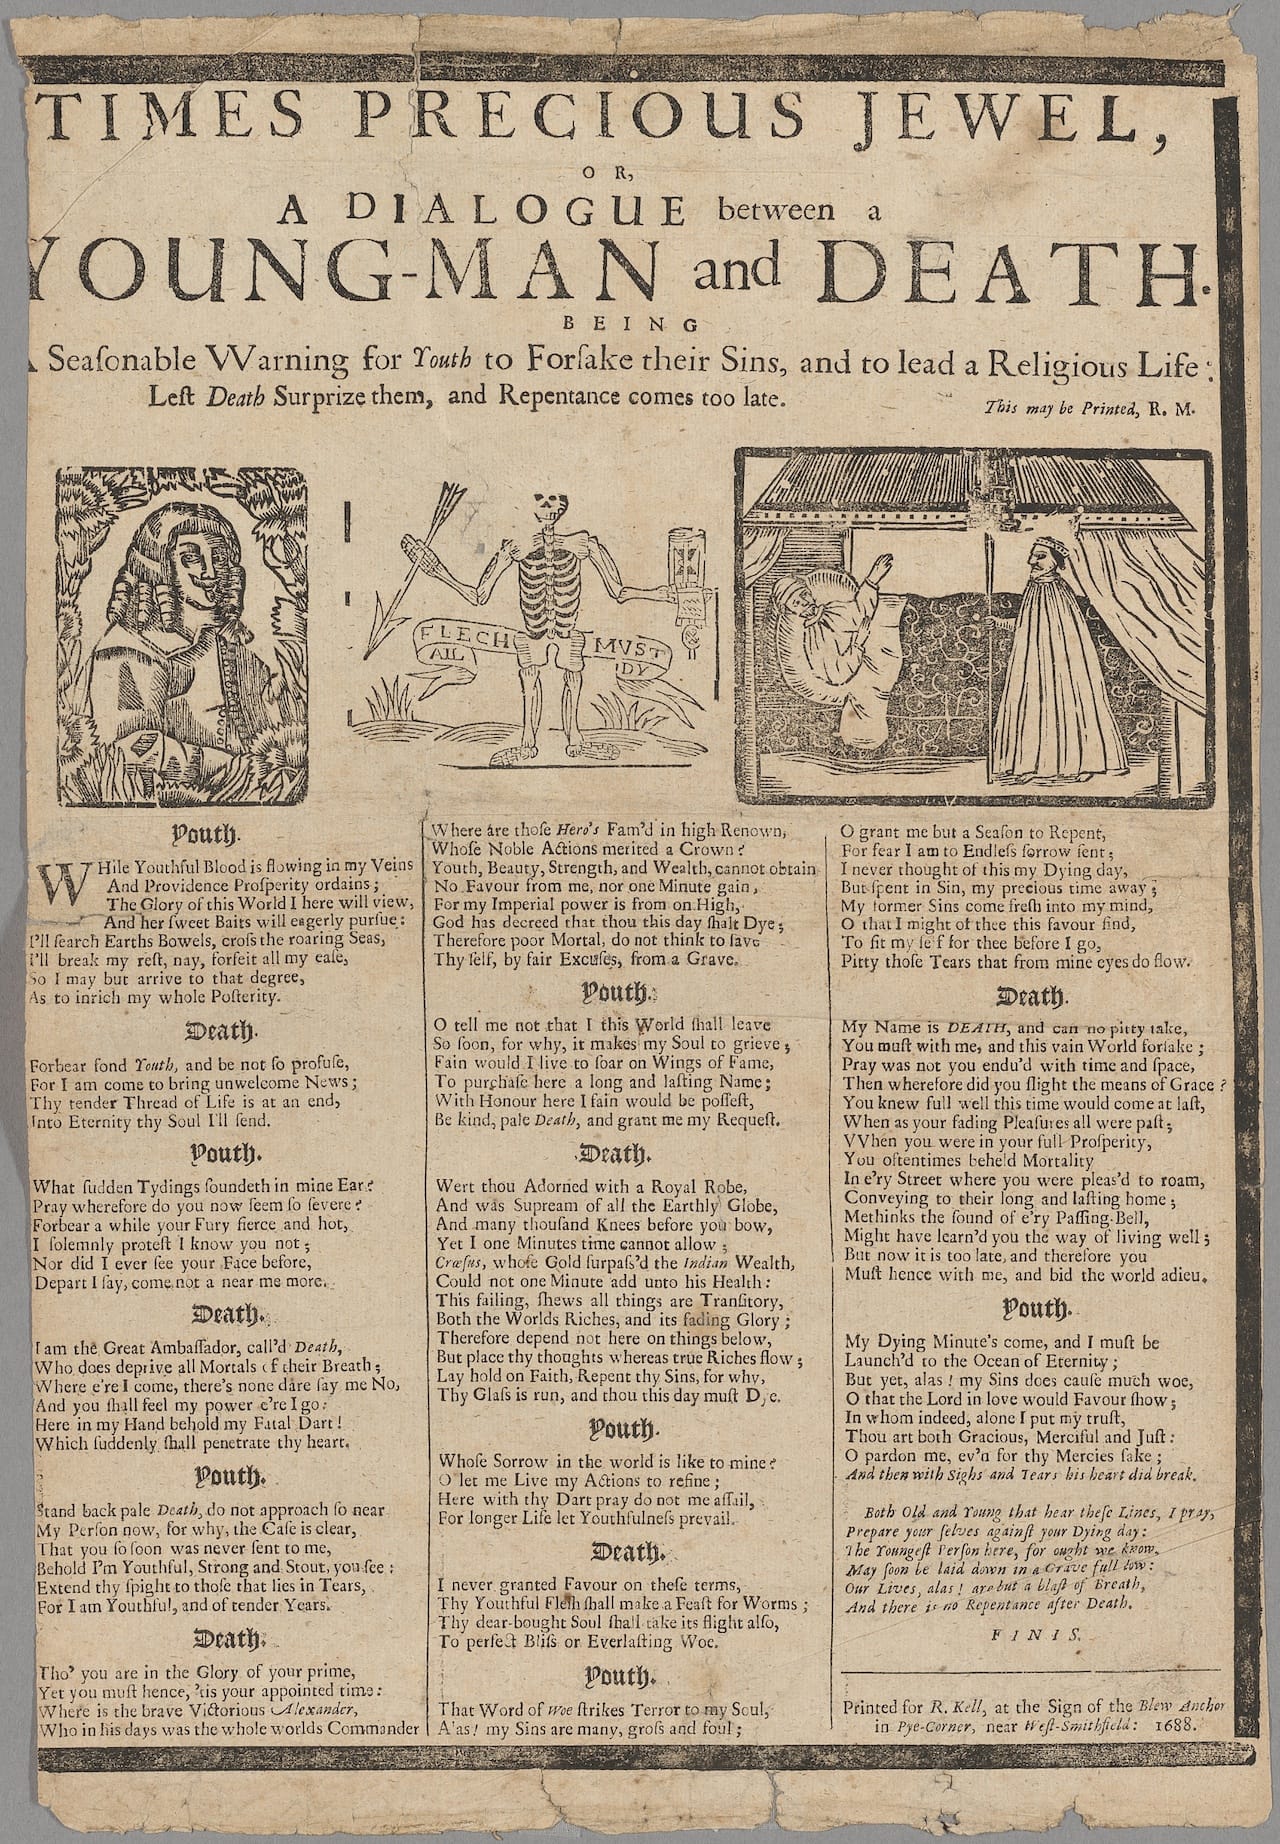 TIMES PRECIOUS JEWEL,
OR,
A DIALOGUE between a
YOUNG-MAN and DEATH.
BEING
A Seaſonable VVarning for Youth to Forſake their Sins, and to lead a Religious Life:
Leſt Death Surprize them, and Repentance comes too late.
This may be Printed, R. M.
FLECH MVST
AIL DY
Youth.
WHile Youthful Blood is flowing in my Veins
And Providence Proſperity ordains;
The Glory of this World I here will view,
And her ſweet Baits will eagerly purſue:
I'll ſearch Earths Bowels, croſs the roaring Seas,
I'll break my reſt, nay, forfeit all my eaſe,
So I may but arrive to that degree,
As to inrich my whole Poſterity.
Death.
Forbear fond Youth, and be not ſo profuſe,
For I am come to bring unwelcome News;
Thy tender Thread of Life is at an end,
Into Eternity thy Soul I'll ſend.
Youth.
What ſudden Tydings ſoundeth in mine Ear?
Pray wherefore do you now ſeem ſo ſevere?
Forbear a while your Fury fierce and hot,
I ſolemnly proteſt I know you not;
Nor did I ever ſee your Face before,
Depart I ſay, come not a near me more.
Death.
I am the Great Ambaſſador, call'd Death,
Who does deprive all Mortals of their Breath;
Where e're I come, there's none dare ſay me No,
And you ſhall feel my power e're I go:
Here in my Hand behold my Fatal Dart!
Which ſuddenly ſhall penetrate thy heart.
Youth.
Stand back pale Death, do not approach ſo near
My Perſon now, for why, the Caſe is clear,
That you ſo ſoon was never ſent to me,
Behold I'm Youthful, Strong and Stout, you ſee:
Extend thy ſpight to thoſe that lies in Tears,
For I am Youthful, and of tender Years.
Death.
Tho' you are in the Glory of your prime,
Yet you muſt hence, 'tis your appointed time:
Where is the brave Victorious Alexander,
Who in his days was the whole worlds Commander
Where are thoſe Hero's Fam'd in high Renown,
Whoſe Noble Actions merited a Crown?
Youth, Beauty, Strength, and Wealth, cannot obtain
No Favour from me, nor one Minute gain,
For my Imperial power is from on High,
God has decreed that thou this day ſhalt Dye;
Therefore poor Mortal, do not think to ſave
Thy ſelf, by fair Excuſes, from a Grave.
Youth.
O tell me not that I this World ſhall leave
So ſoon, for why, it makes my Soul to grieve;
Fain would I live to ſoar on Wings of Fame,
To purchaſe here a long and laſting Name;
With Honour here I fain would be poſſeſt,
Be kind, pale Death, and grant me my Requeſt.
Death.
Wert thou Adorned with a Royal Robe,
And was Supream of all the Earthly Globe,
And many thouſand Knees before you bow,
Yet I one Minutes time cannot allow;
Crœſus, whoſe Gold ſurpaſs'd the Indian Wealth,
Could not one Minute add unto his Health:
This failing, ſhews all things are Tranſitory,
Both the Worlds Riches, and its fading Glory;
Therefore depend not here on things below,
But place thy thoughts whereas true Riches flow;
Lay hold on Faith, Repent thy Sins, for why,
Thy Glaſs is run, and thou this day muſt Dye.
Youth.
Whoſe Sorrow in the world is like to mine?
O let me Live my Actions to refine;
Here with thy Dart pray do not me aſſail,
For longer Life let Youthfulneſs prevail.
Death.
I never granted Favour on theſe terms,
Thy Youthful Fleſh ſhall make a Feaſt for Worms;
Thy dear-bought Soul ſhall take its flight alſo,
To perfect Bliſs or Everlaſting Woe.
Youth.
That Word of Woe ſtrikes Terror to my Soul,
Alas! my Sins are many, groſs and foul;
O grant me but a Seaſon to Repent,
For fear I am to Endleſs ſorrow ſent;
I never thought of this my Dying day,
But ſpent in Sin, my precious time away;
My former Sins come freſh into my mind,
O that I might of thee this favour find,
To fit my ſelf for thee before I go,
Pitty thoſe Tears that from mine eyes do flow.
Death.
My Name is DEATH, and can no pitty take,
You muſt with me, and this vain World forſake;
Pray was not you endu'd with time and ſpace,
Then wherefore did you ſlight the means of Grace?
You knew full well this time would come at laſt,
When as your fading Pleaſures all were paſt;
VVhen you were in your full Proſperity,
You oftentimes beheld Mortality
In e'ry Street where you were pleas'd to roam,
Conveying to their long and laſting home;
Methinks the ſound of e'ry Paſſing-Bell,
Might have learn'd you the way of living well;
But now it is too late, and therefore you
Muſt hence with me, and bid the world adieu.
Youth.
My Dying Minute's come, and I muſt be
Launch'd to the Ocean of Eternity;
But yet, alas! my Sins does cauſe much woe,
O that the Lord in love would Favour ſhow;
In whom indeed, alone I put my truſt,
Thou art both Gracious, Merciful and Juſt:
O pardon me, ev'n for thy Mercies ſake;
And then with Sighs and Tears his heart did break.
Both Old and Young that hear theſe Lines, I pray,
Prepare your ſelves againſt your Dying day:
The Youngeſt Perſon here, for ought we know,
May ſoon be laid down in a Grave full low:
Our Lives, alas! are but a blaſt of Breath,
And there is no Repentance after Death.
FINIS.
Printed for R. Kell, at the Sign of the Blew Anchor
in Pye-Corner, near Weſt-Smithfield: 1688.